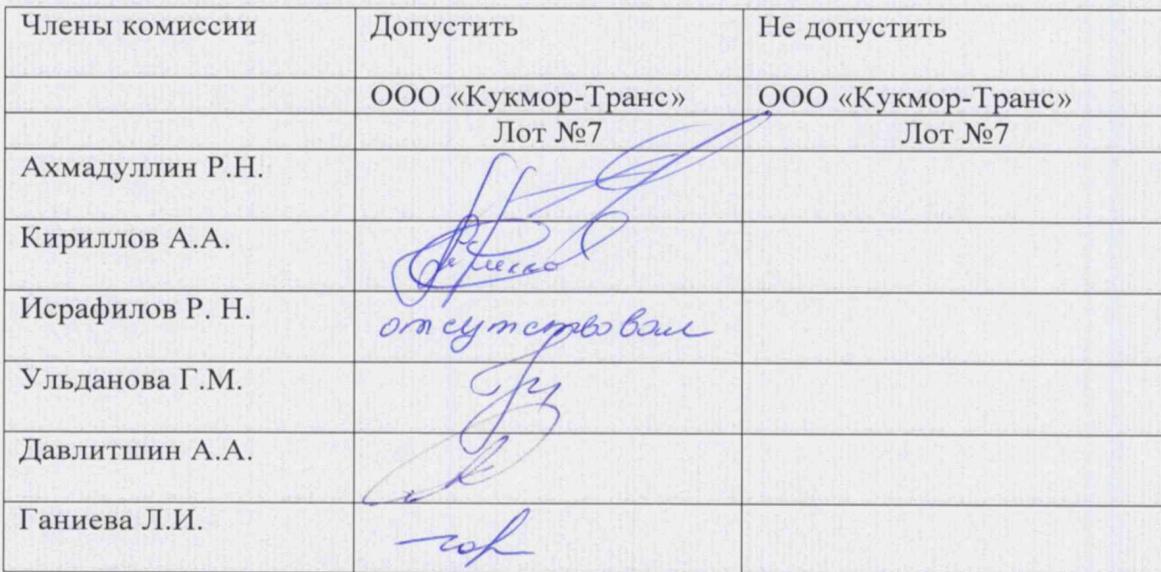 Члены комиссии Допустить Не допустить
ООО «Кукмор-Транс» ООО «Кукмор-Транс»
Лот №7 Лот №7
Ахмадуллин Р.Н.
Кириллов А.А.
Исрафилов Р. Н. отсутствовал
Ульданова Г.М.
Давлитшин А.А.
Ганиева Л.И.